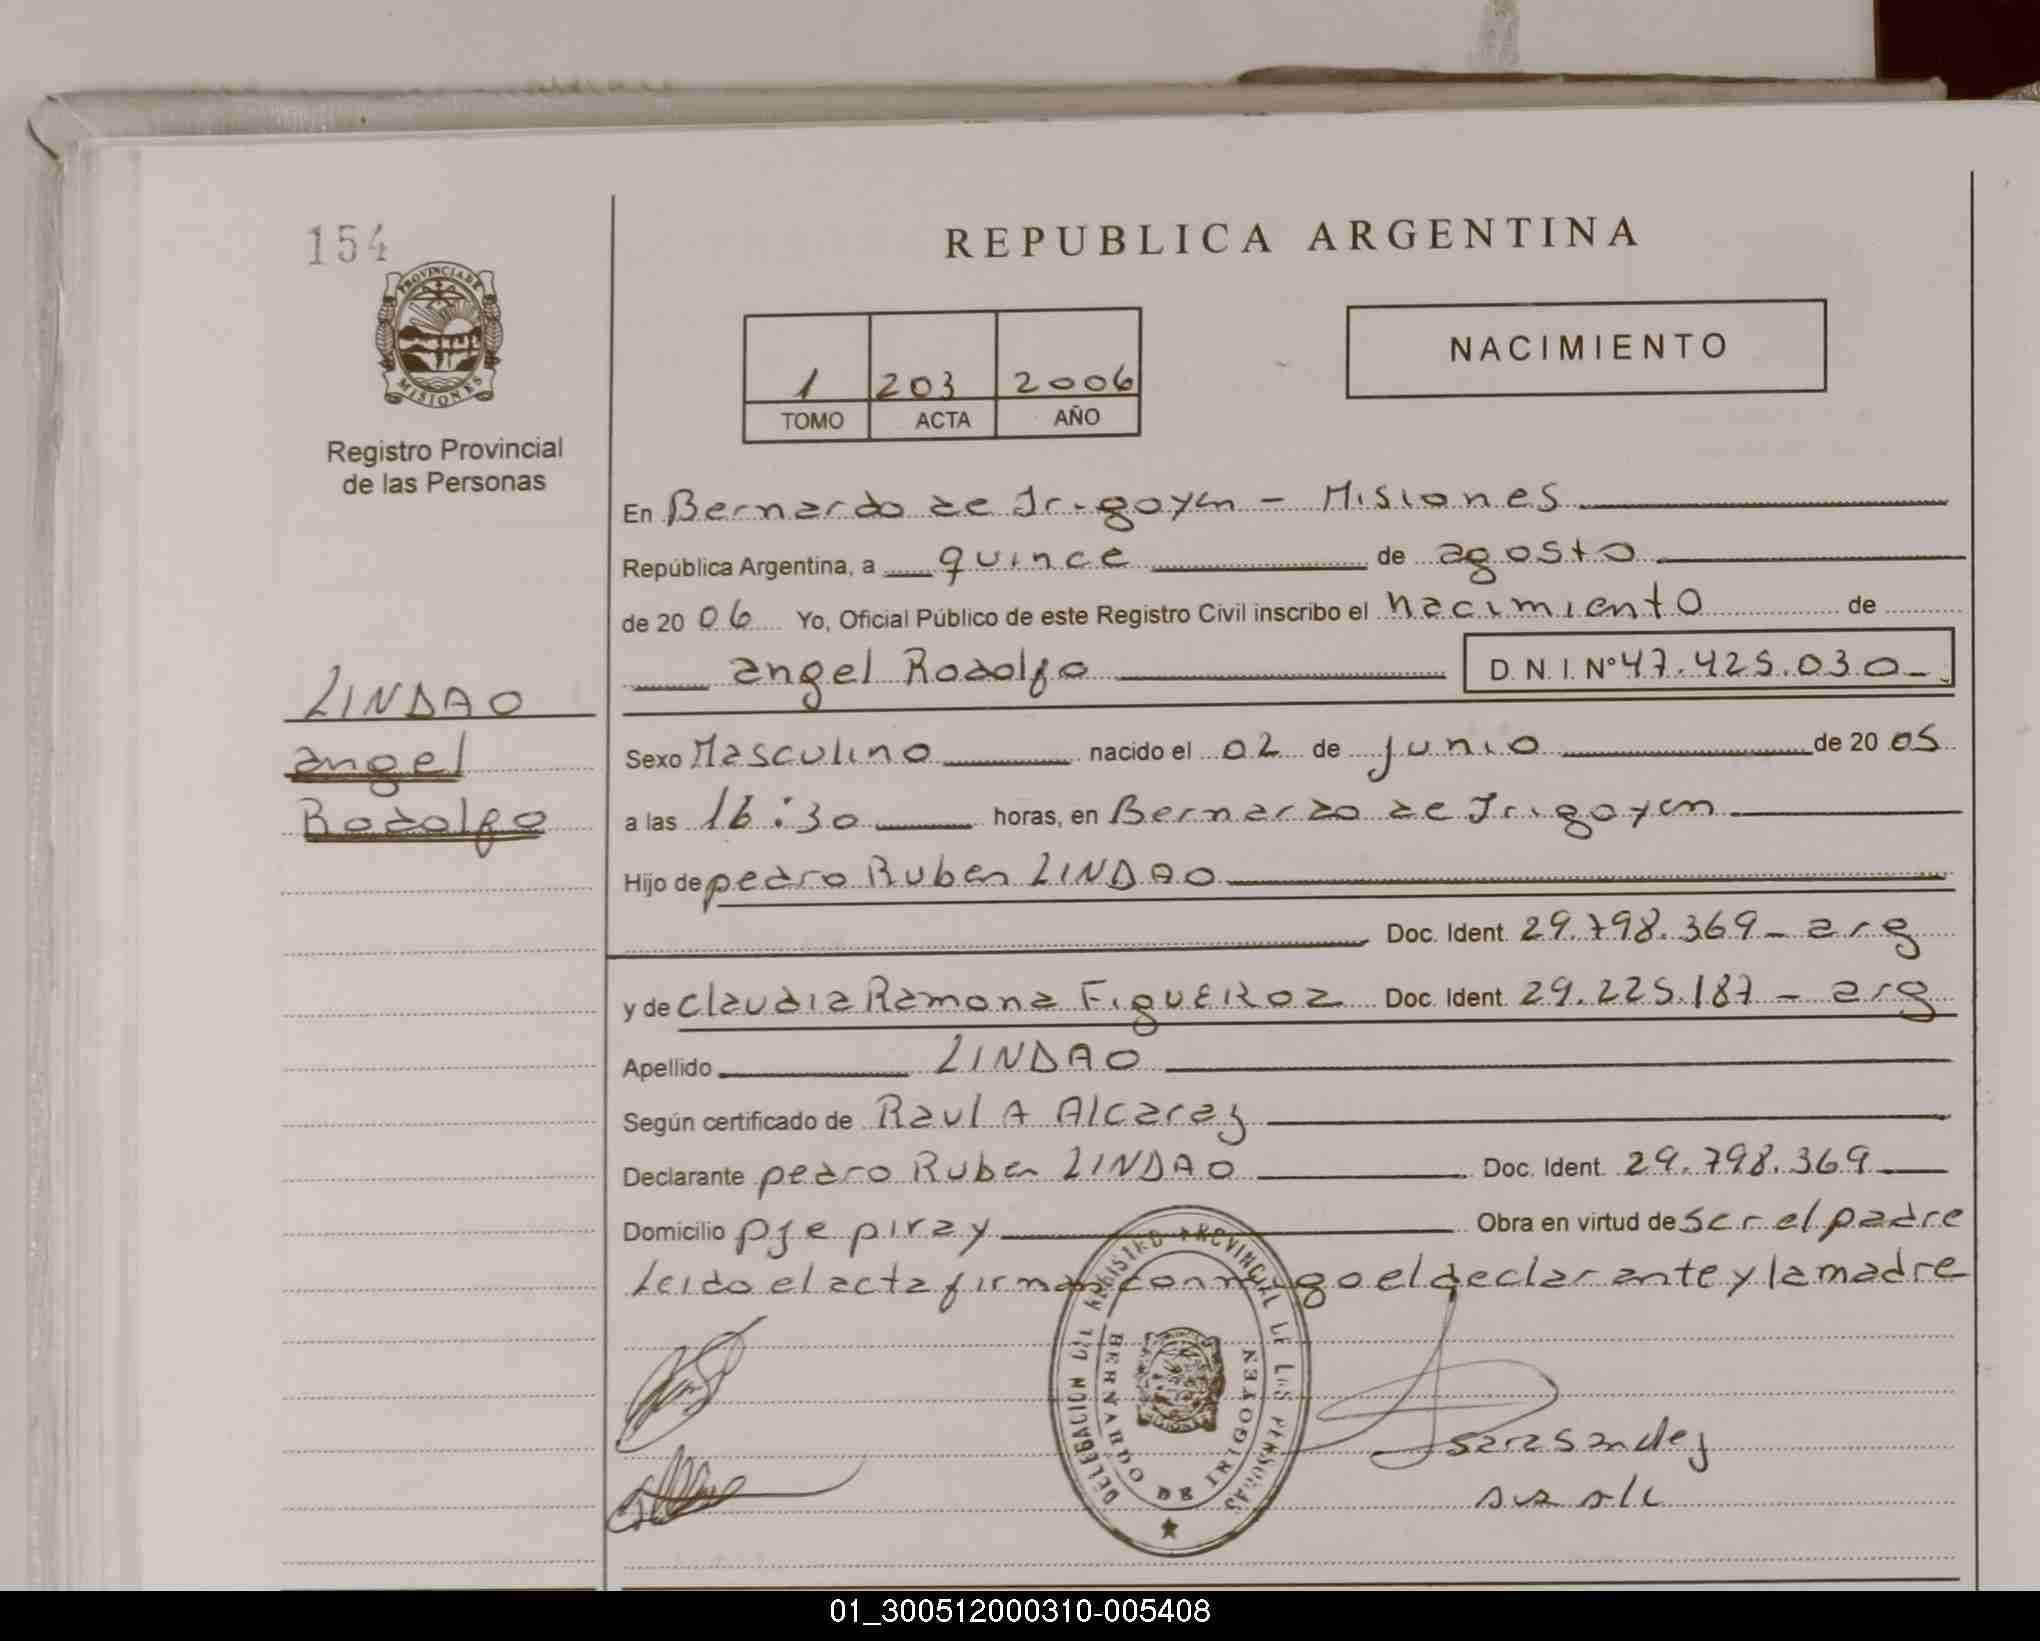 154
PROVINCIA DE
MISIONES
Registro Provincial
de las Personas
LINDAO
angel
Rodolfo
REPUBLICA ARGENTINA
1 203 2006
TOMO ACTA AÑO
NACIMIENTO
En Bernardo de Irigoyen - Misiones
República Argentina, a quince de agosto
de 2006 Yo, Oficial Público de este Registro Civil inscribo el nacimiento de
angel Rodolfo D.N.I. Nº 47.425.030
Sexo Masculino nacido el 02 de junio de 2005
a las 16:30 horas, en Bernardo de Irigoyen
Hijo de pedro Ruben LINDAO
Doc. Ident. 29.798.369 - arg
y de claudia Ramona FigUEROa Doc. Ident. 29.225.187 - arg
Apellido LINDAO
Según certificado de Raul A Alcaraz
Declarante pedro Ruben LINDAO Doc. Ident. 29.798.369
Domicilio pje piray Obra en virtud de ser el padre
Leido el acta firman conmigo el declarante y la madre
DELEGACION DEL REGISTRO PROVINCIAL DE LAS PERSONAS
BERNARDO DE IRIGOYEN
01_300512000310-005408